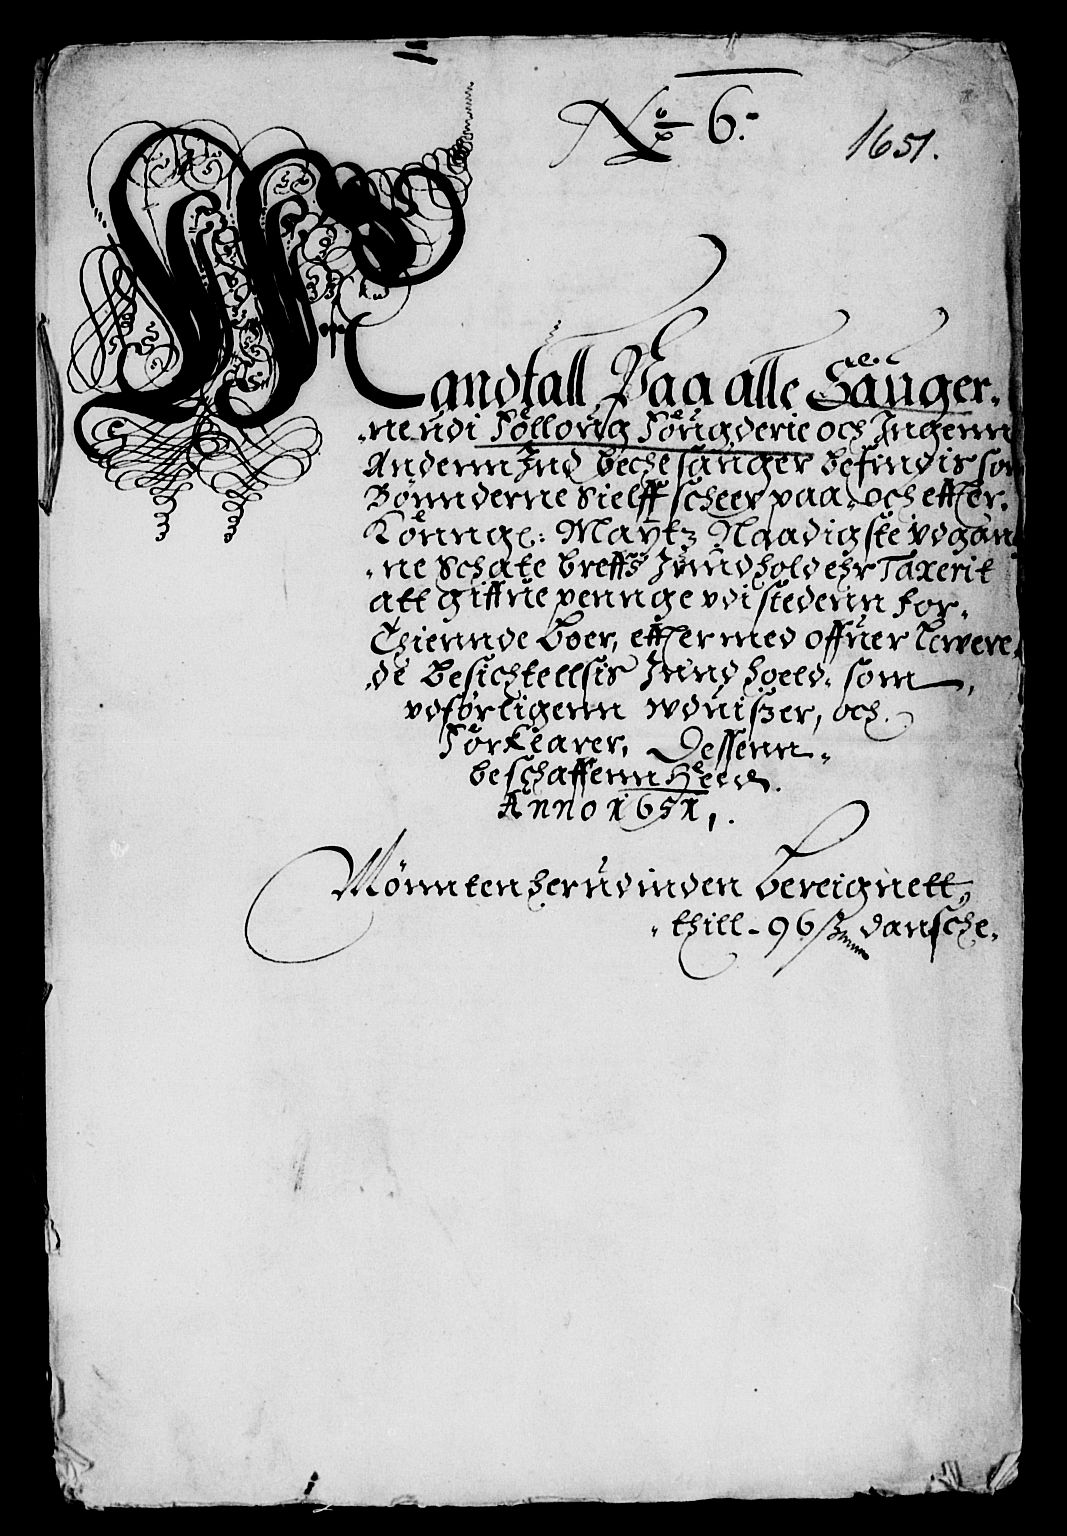 No 6.
1651.
Mandtall Paa alle Sauger,
,ne udi Follovig Fougderie och Ingenn
Andernn Ind beche sauger befindis som
Bønnderne Sielff scheer paa, och effter,
Könngl: Maytz Naadigste vdgan
,ne Schate breffs Inndhold ehr Taxerit
att giffue pennge vdi stedenn for,
Thiennde Boer, effter med offuer lewere,
,de Besichtellsis Inndhoeld, som,
vdførligenn wduiszer, och
Forklarer, Dessenn,
beschaffenn Heed.
Anno 1651,.
Mønnten herudinden bereignett,
,thill - 96 ß dansche,